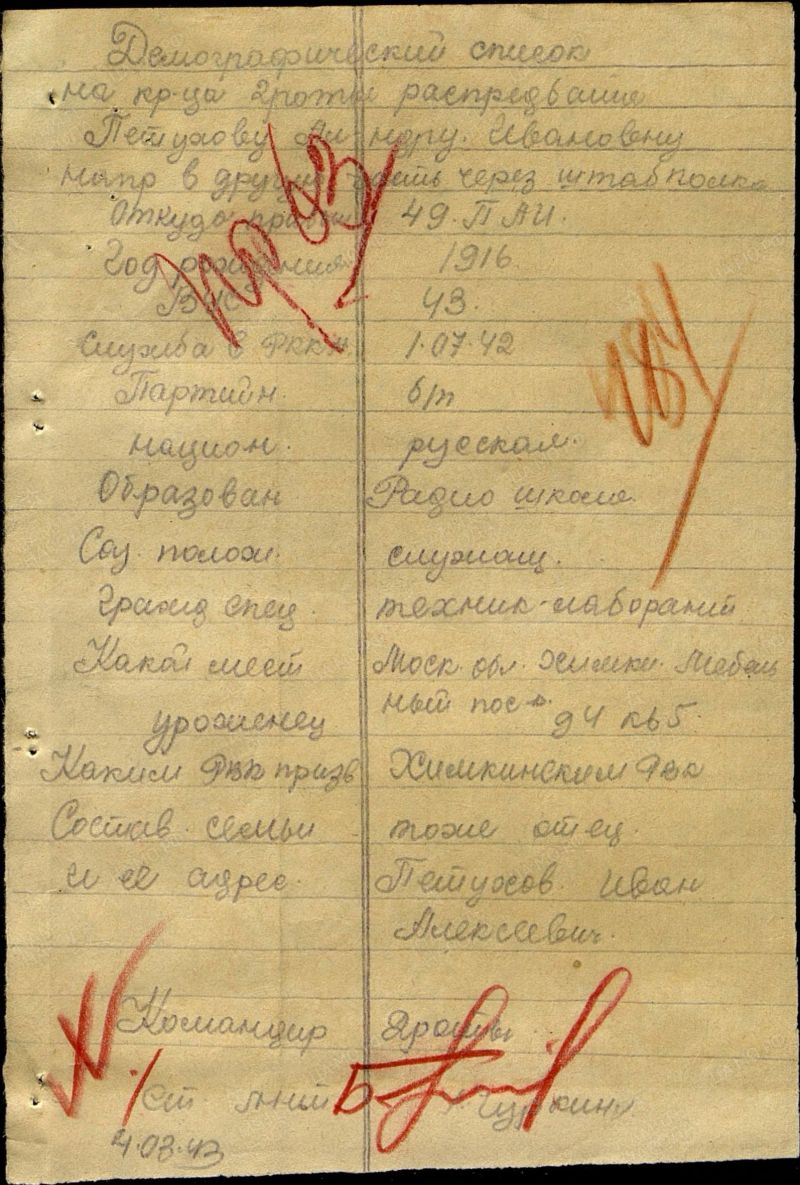 Демографический список
на кр-ца 2 роты распредбата
Петухову Ал-ндру Ивановну
напр в другую часть через штаб полка
Откуда прибыл 49. П А И.
Год рождения 1916
ВУС 43.
Служба в РККА 1.07.42
Партийн б/п
национ. русская.
Образован Радио школа
Соц. полож. служащ.
гражд спец. техник-лаборант
Какой мест Моск. обл. Химки. Мебель
урож­енец ный пос. д 4 кв 5.
Каким РВК призв Химкинским РВК
Состав семьи тоже отец.
и её адрес. Петухов Иван
Алексеевич.
Командир 2роты
Ст лейт
4.03.43